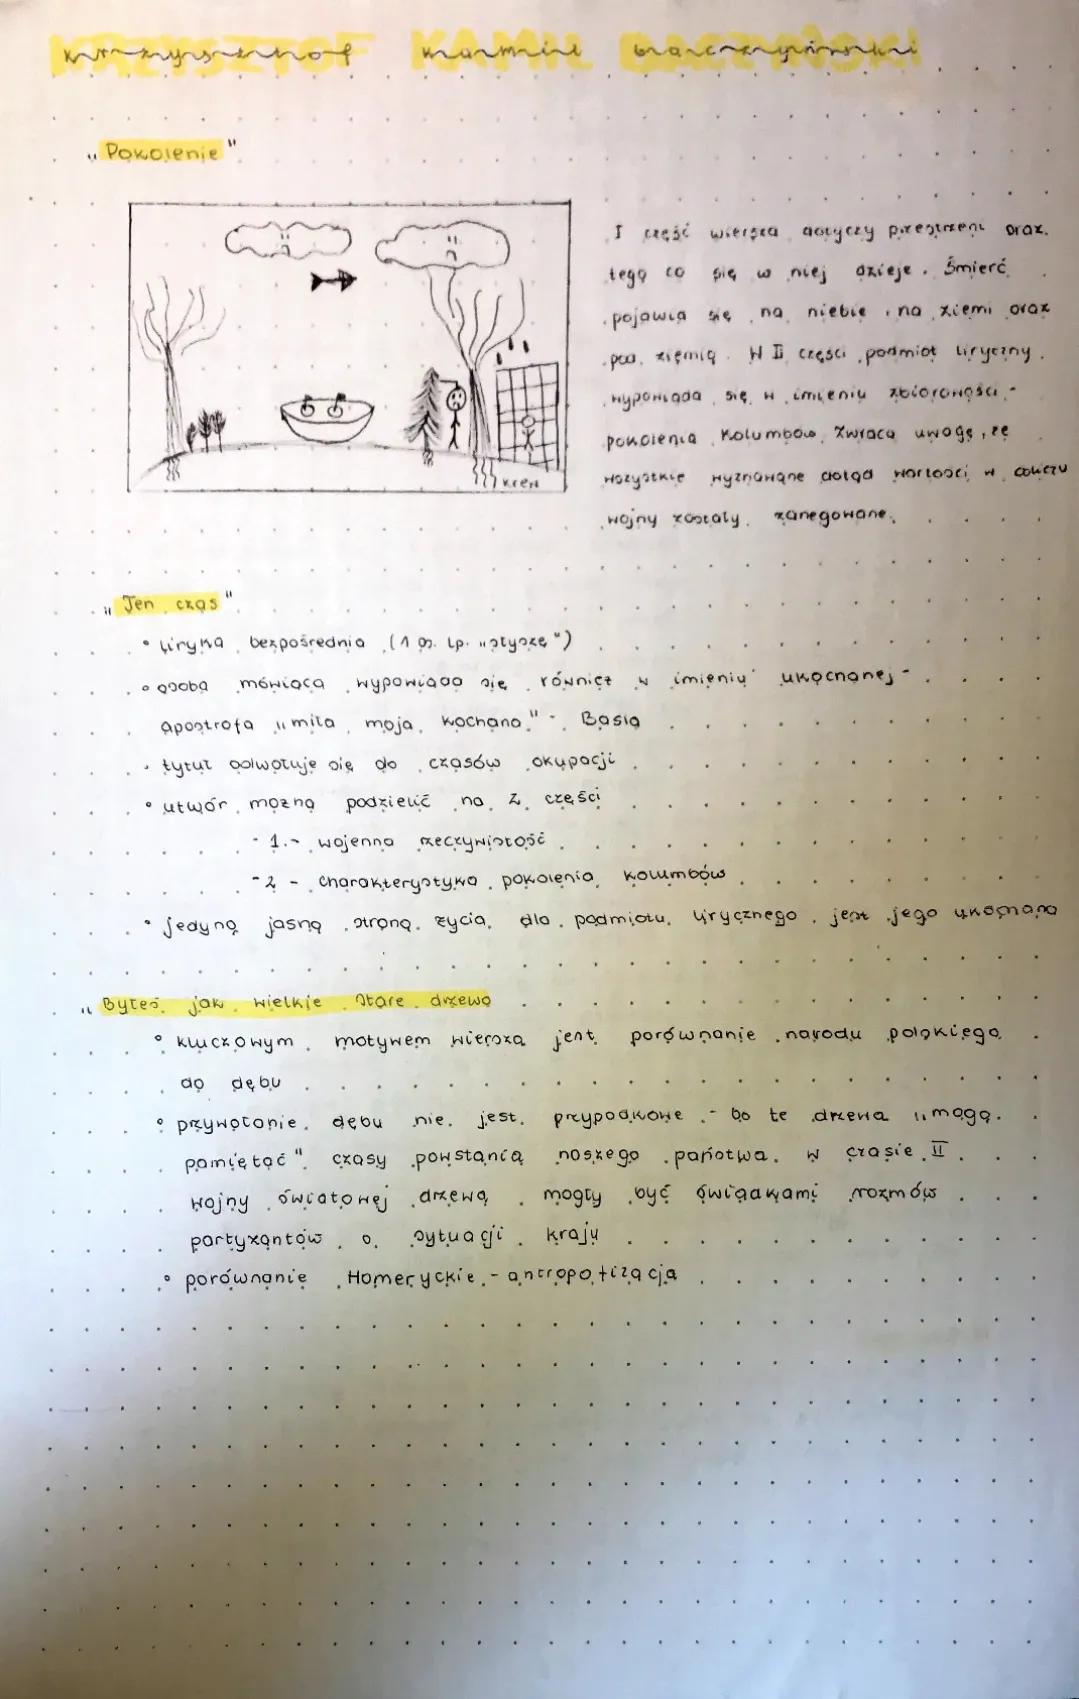 krzysztof kamil baczyński
KRZYSZTOF KAMIL BACZYŃSKI
„Pokolenie"
I część wiersza dotyczy przestrzeni oraz
tego co się w niej dzieje. Śmierć
pojawia się na niebie, na ziemi oraz
pod ziemią. W II części podmiot liryczny
wypowiada się w imieniu zbiorowości -
pokolenia Kolumbów. Zwraca uwagę, że
wszystkie wyznawane dotąd wartości w obliczu
wojny zostały zanegowane.
krew
„Ten czas"
• liryka bezpośrednia (1 os. lp. „słyszę")
• osoba mówiąca wypowiada się również w imieniu ukochanej -
apostrofa „miła moja, kochana" - Basia
• tytuł odwołuje się do czasów okupacji
• utwór można podzielić na 2 części
- 1 - wojenna rzeczywistość
- 2 - charakterystyka pokolenia kolumbów
• jedyną jasną stroną życia dla podmiotu lirycznego jest jego ukochana
„Byłeś jak wielkie stare drzewo
• kluczowym motywem wiersza jest porównanie narodu polskiego
do dębu
• przywołanie dębu nie jest przypadkowe - bo te drzewa „mogą
pamiętać" czasy powstania naszego państwa. W czasie II
wojny światowej drzewa mogły być świadkami rozmów
partyzantów o sytuacji kraju
• porównanie Homeryckie - antropotizacja